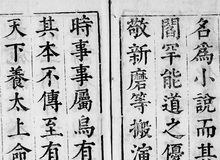 名為小說而其
閻罕能道之優
敬新磨等搬演
時事事屬烏有
其本不傳至有
天下養太上命